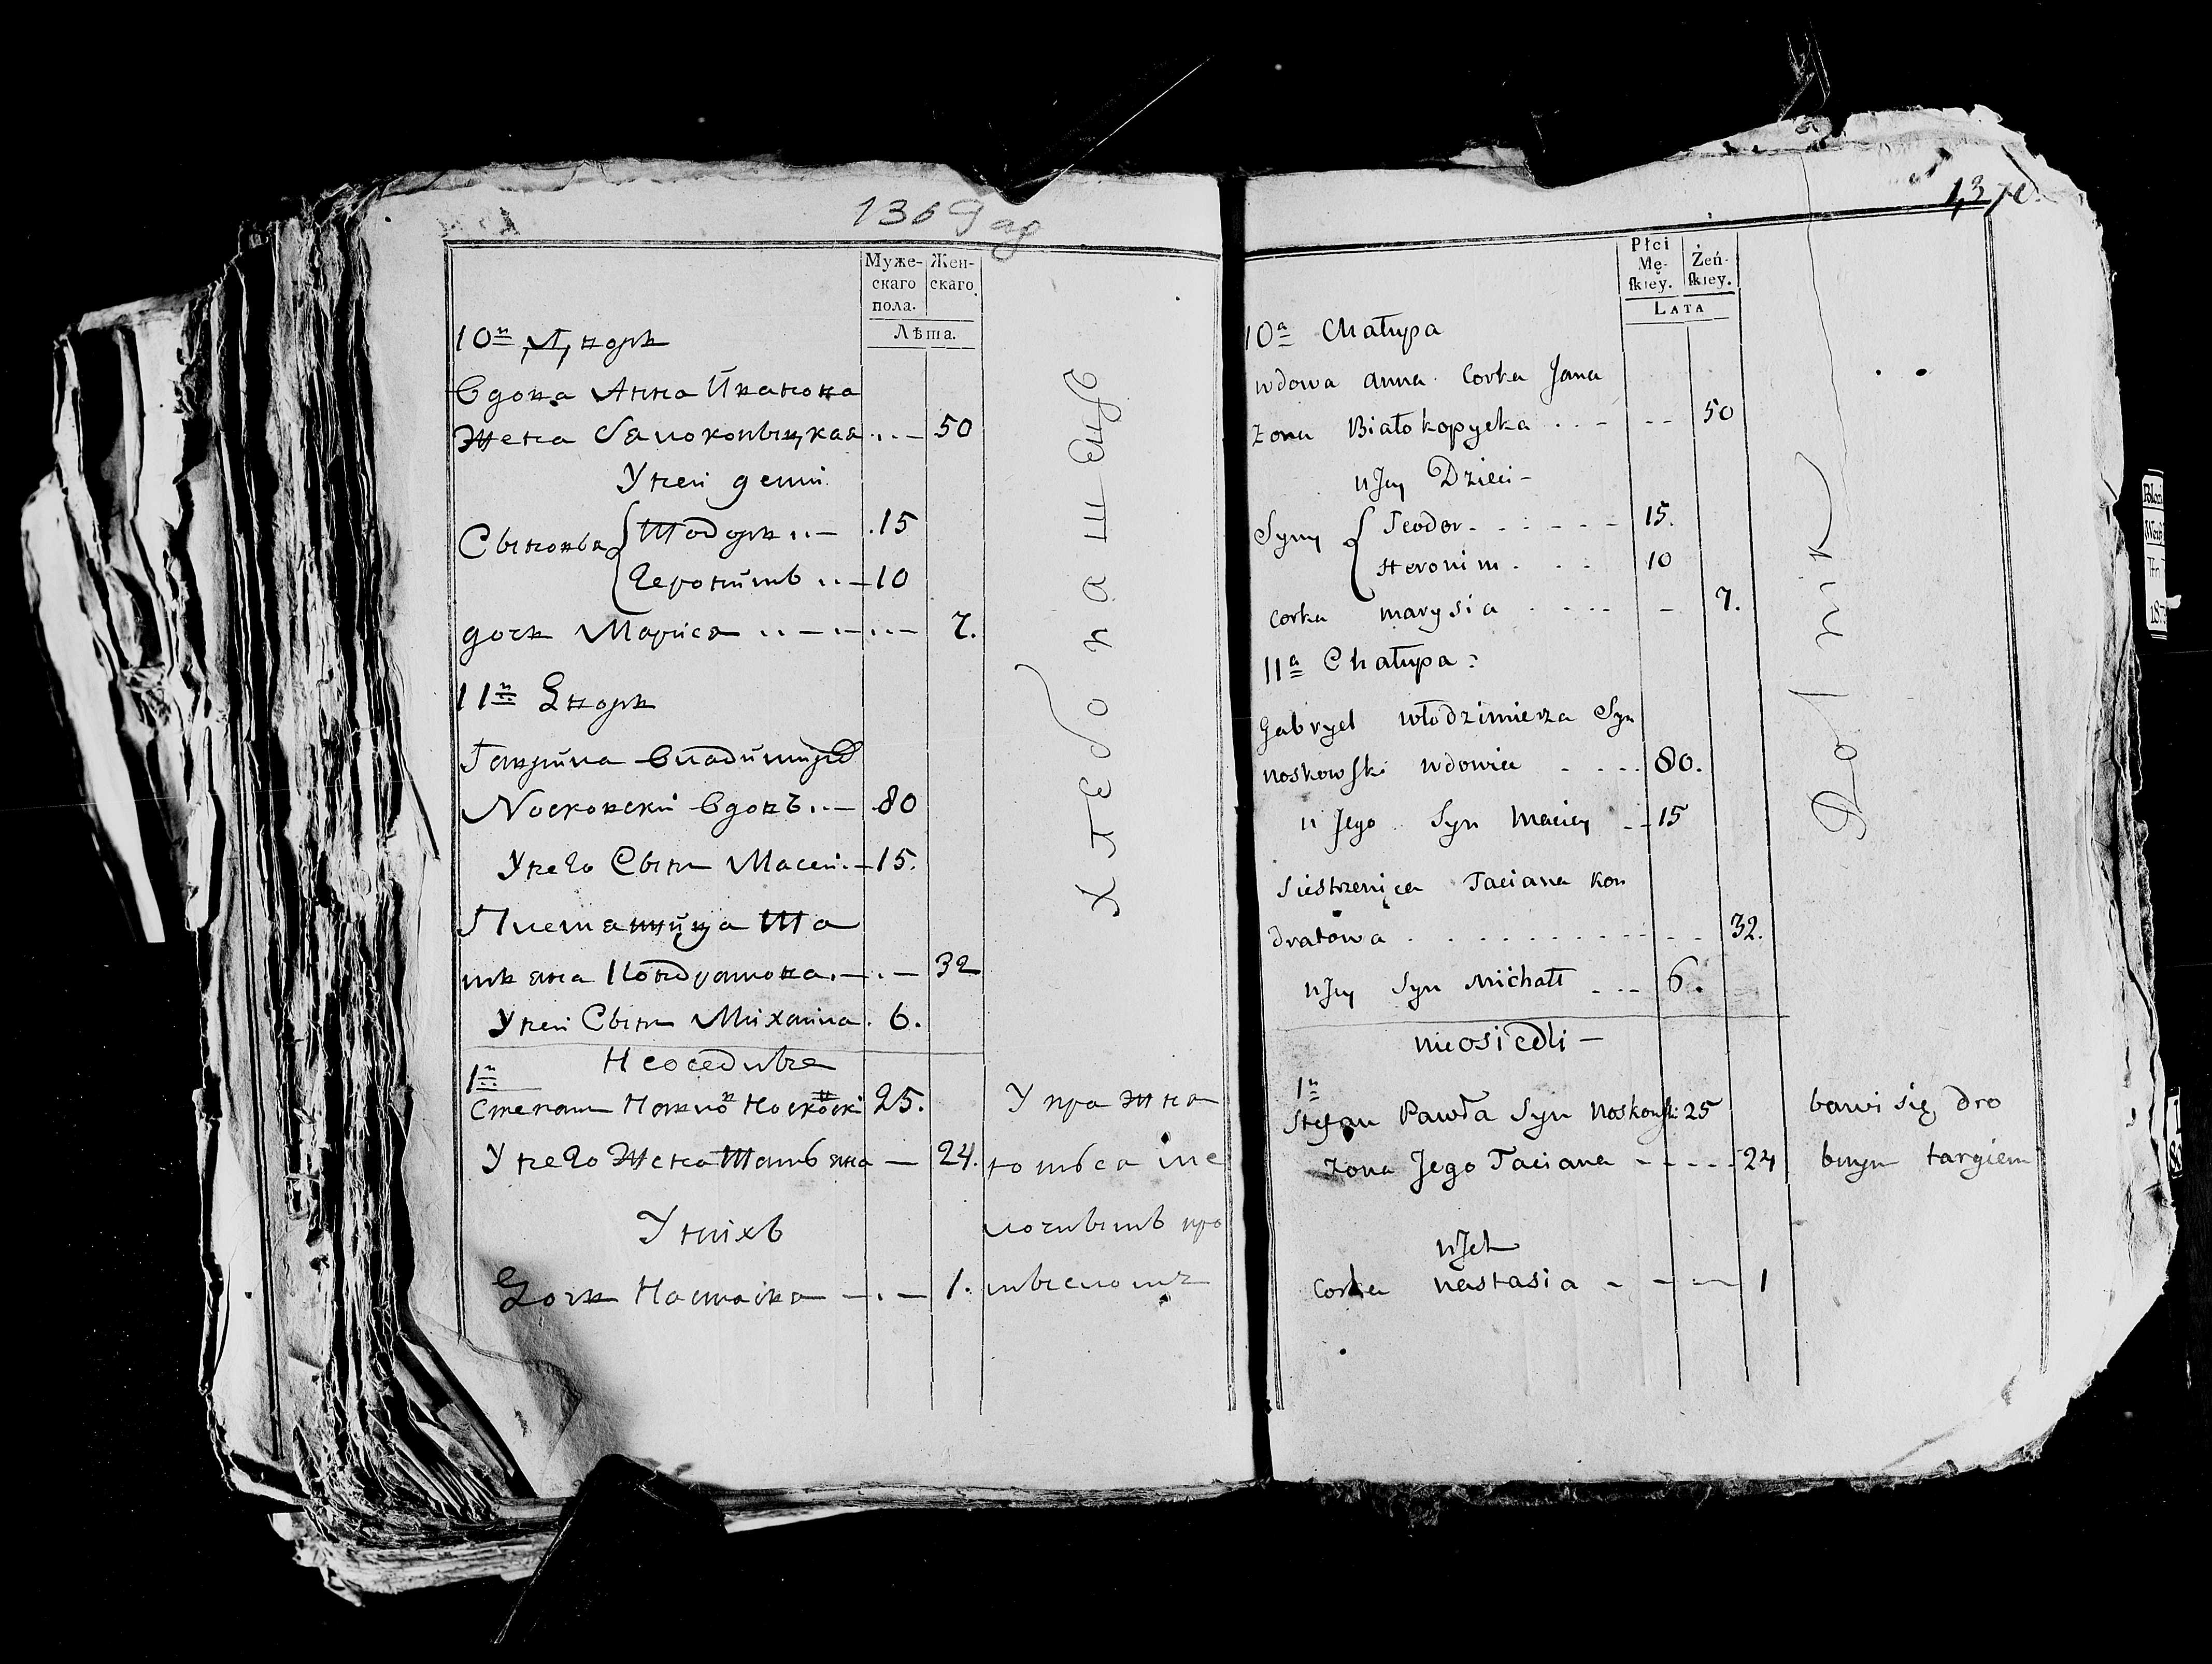 1369
Муже-
скаго
пола.
Жен-
скаго
Лѣта.
10я Дворъ
Вдова Анна Иванова
Жена Бялокопыцкая 50
У ней дети
Сыновья { Тодоръ 15
Геронимъ 10
дочь Марися 7.
11й Дворъ
Гаврила Владимиров
Носковски вдовъ 80
У него Сынъ Мацей 15.
Племянница Та
тьяна Кондратова 32
У ней Сынъ Михаила 6.
Неоседлые
1й
Степан Павлов Носковски 25.
У него Жена Татьяна 24.
У нихъ
Дочь Настасия 1.
хлебопашецъ
Упражня
ется ме
лочнымъ про
мысломъ
13
Płci
Mę-
ſkiey.
Żeń-
ſkiey.
LATA
10a Chałupa
wdowa anna Corka Jana
żona Białokopycka 50
u Jey Dzieci -
Syny { Teodor 15.
Heronim 10
corka marysia 7.
11a Chałupa :
Gabryel włodzimierza Syn
noskowski wdowiec 80.
u Jego Syn Maciey 15
Siestrzenica Taciana Kon
dratowa 32.
u Jey Syn Michałł 6.
nieosiedli -
1n
Stefan Pawła Syn Noskowski 25
żona Jego Taciana 24
u Jch
Corka nastasia 1
Rolnik
bawi się dro
bnym targiem